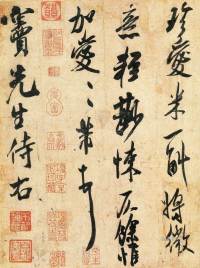 珍愛米一斛將微
意輕尠悚仄餘惟
加愛〻芾頓首
竇先生侍右